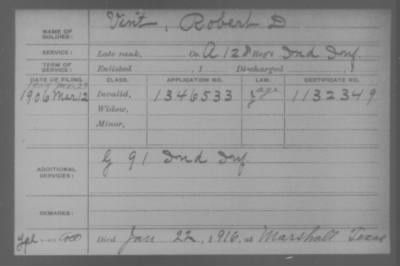 NAME OF SOLDIER: Vint, Robert D
SERVICE: Late rank, Co. A 128 Reg't Ind Inf.
TERM OF SERVICE: Enlisted , 1 Discharged , 1
DATE OF FILING. CLASS. APPLICATION NO. LAW. CERTIFICATE NO.
1906 Mar 12 Invalid, 1346533 age 1132349
Widow,
Minor,
ADDITIONAL SERVICES: G 91 Ind Inf
REMARKS:
Died Jan 22, 1916, at Marshall Texas